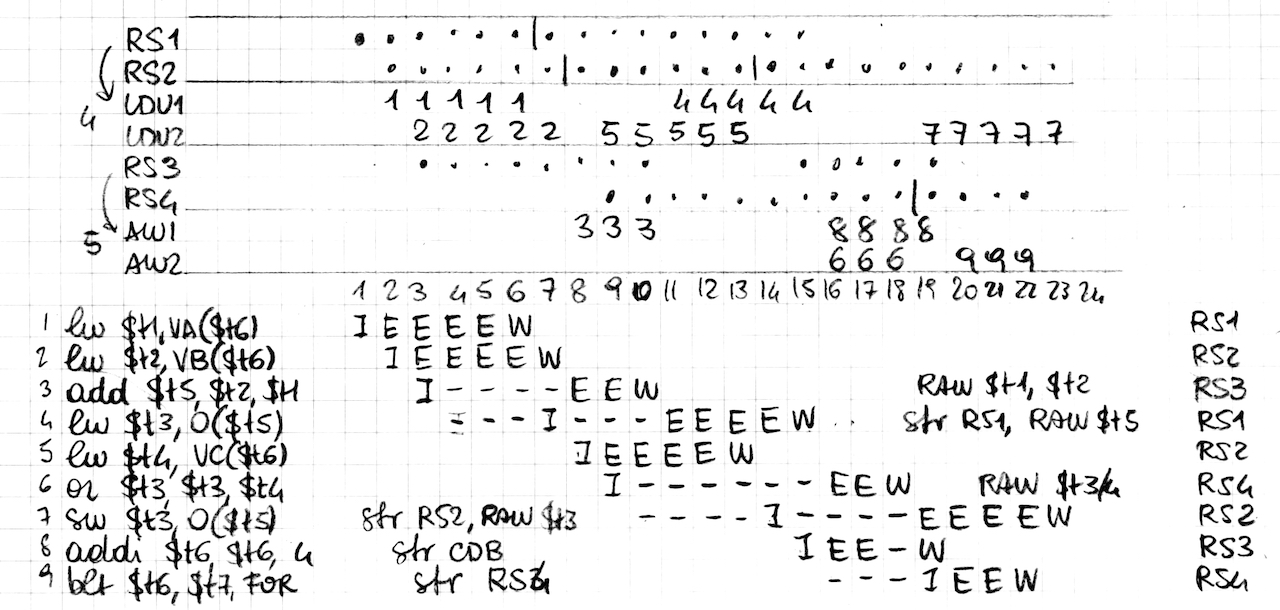 RS1
RS2
4 LDU1 1 1 1 1 1 4 4 4 4 4
LDU2 2 2 2 2 2 5 5 5 5 5 7 7 7 7 7
RS3
RS4
5 ALU1 3 3 3 8 8 8 8
ALU2 6 6 6 9 9 9
1 2 3 4 5 6 7 8 9 10 11 12 13 14 15 16 17 18 19 20 21 22 23 24
1 lw $t1,VA($t6) I E E E E W RS1
2 lw $t2,VB($t6) I E E E E W RS2
3 add $t5, $t2, $t1 I - - - - E E W RAW $t1, $t2 RS3
4 lw $t3, 0($t5) - - - I - - - E E E E W str RS1, RAW $t5 RS1
5 lw $t4, VC($t6) I E E E E W RS2
6 or $t3, $t3, $t4 I - - - - - - E E W RAW $t3/4 RS4
7 sw $t3, 0($t5) str RS2, RAW $t3 - - - - I - - - - E E E E W RS2
8 addi $t6, $t6, 4 str CDB I E E - W RS3
9 blt $t6, $t7, FOR str RS4 - - - I E E W RS4